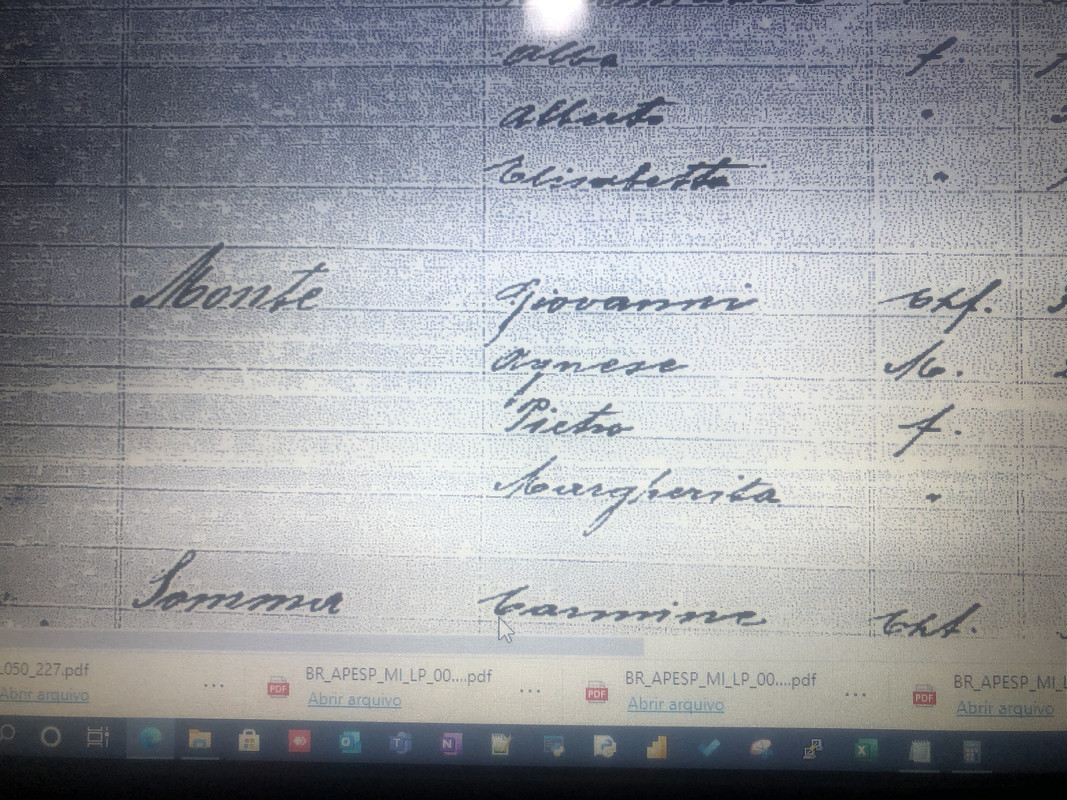 Alba f.
Alberto "
Elisabetta "
Monte Giovanni Chf.
Agnese M.
Pietro f.
Margherita "
Somma Carmine Chf.
050_227.pdf ... BR_APESP_MI_LP_00....pdf ... BR_APESP_MI_LP_00....pdf ... BR_APESP_MI_L
Abrir arquivo Abrir arquivo Abrir arquivo Abrir arquivo